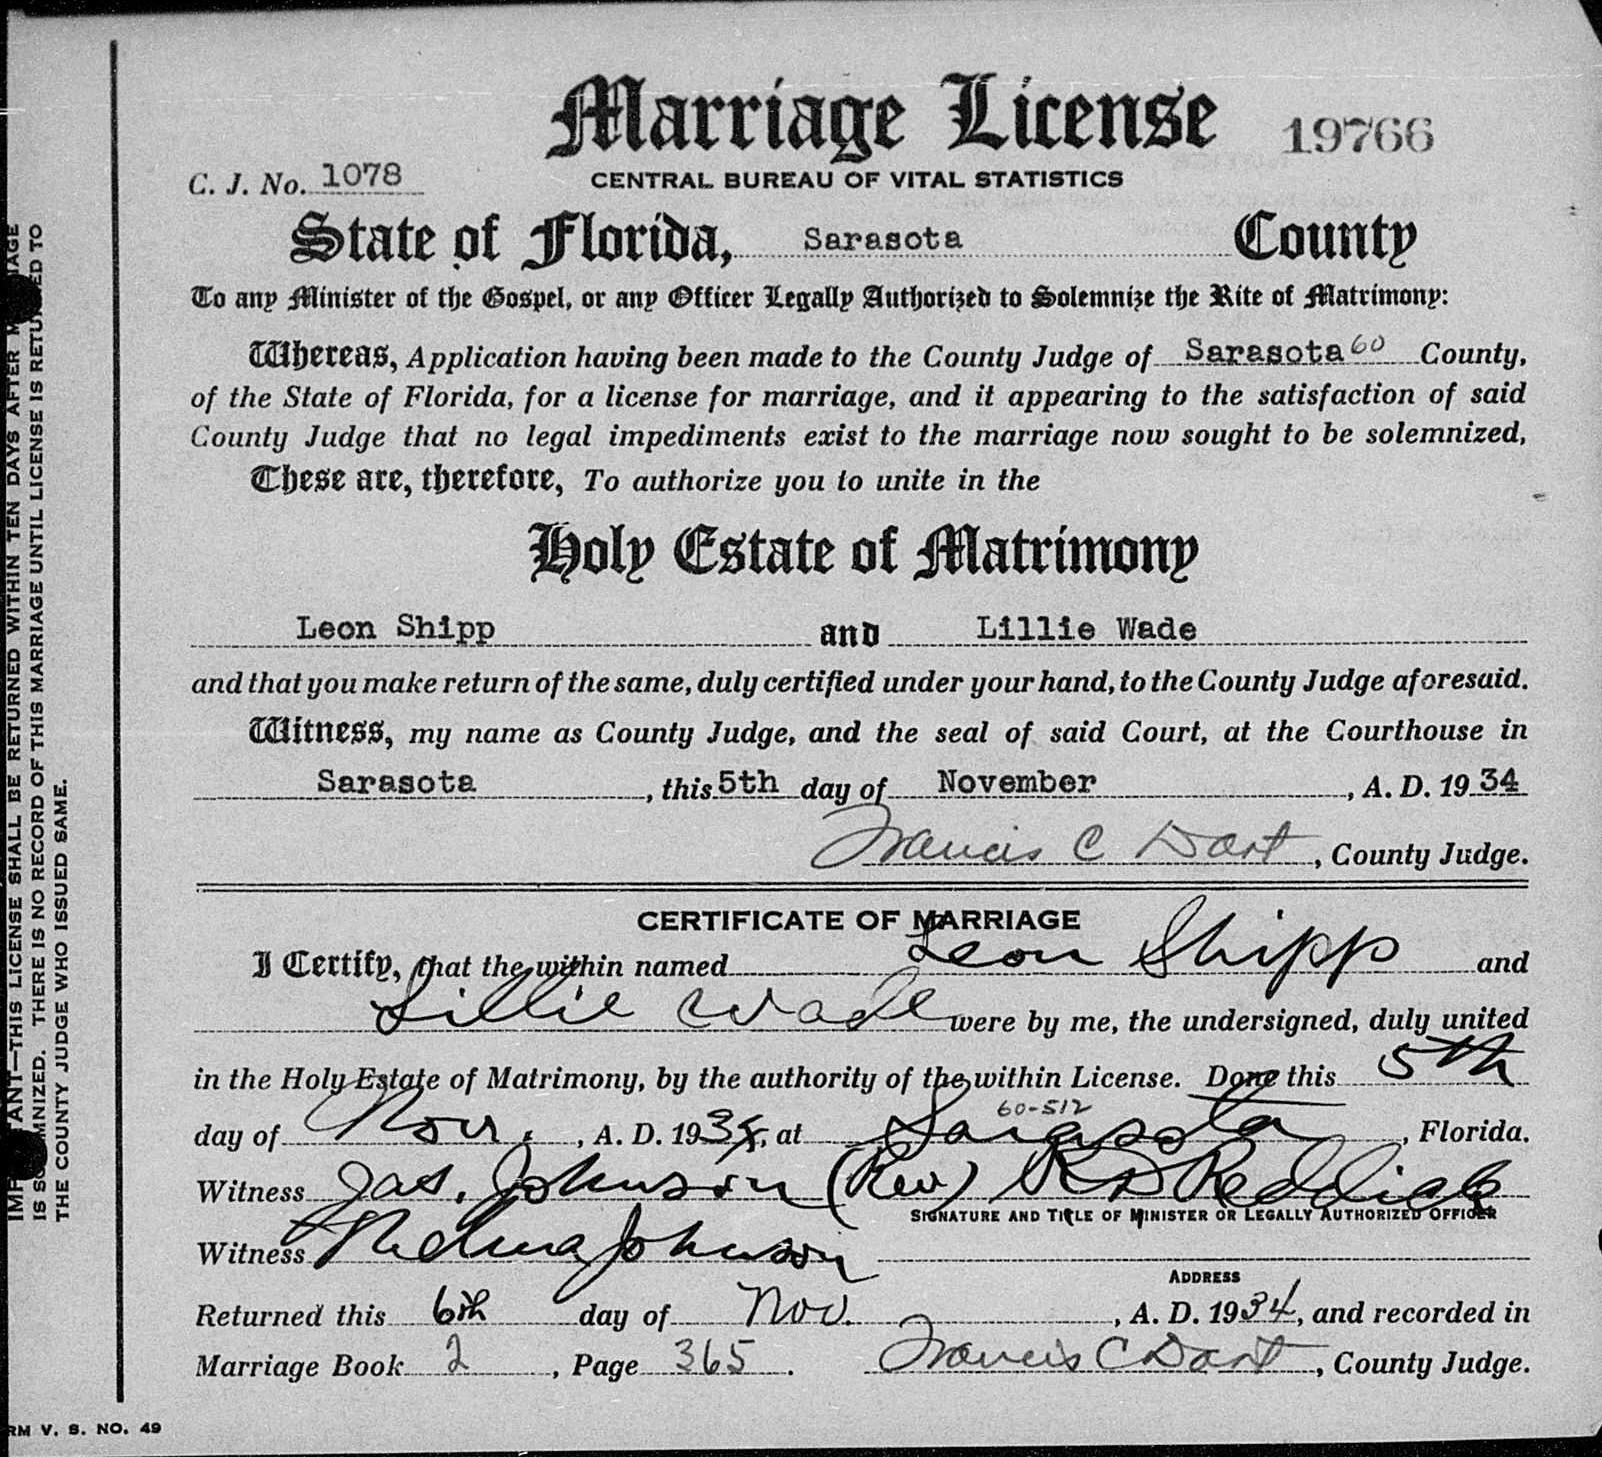 Marriage License 19766
C. J. No. 1078 CENTRAL BUREAU OF VITAL STATISTICS
State of Florida, Sarasota County
To any Minister of the Gospel, or any Officer Legally Authorized to Solemnize the Rite of Matrimony:
Whereas, Application having been made to the County Judge of Sarasota 60 County,
of the State of Florida, for a license for marriage, and it appearing to the satisfaction of said
County Judge that no legal impediments exist to the marriage now sought to be solemnized,
These are, therefore, To authorize you to unite in the
Holy Estate of Matrimony
Leon Shipp and Lillie Wade
and that you make return of the same, duly certified under your hand, to the County Judge aforesaid.
Witness, my name as County Judge, and the seal of said Court, at the Courthouse in
Sarasota, this 5th day of November, A. D. 1934
Francis C Dart, County Judge.
CERTIFICATE OF MARRIAGE
I Certify, that the within named Leon Shipp and
Lillie Wade were by me, the undersigned, duly united
in the Holy Estate of Matrimony, by the authority of the within License. Done this 5th
60-512
day of Nov., A. D. 1934, at Sarasota, Florida.
Witness Jas. Johnson (Rev) R D Reddick
SIGNATURE AND TITLE OF MINISTER OR LEGALLY AUTHORIZED OFFICER
Witness Johnson
ADDRESS
Returned this 6th day of Nov., A. D. 1934, and recorded in
Marriage Book 2, Page 365. Francis C Dart, County Judge.
THIS LICENSE SHALL BE RETURNED WITHIN TEN DAYS AFTER
THERE IS NO RECORD OF THIS MARRIAGE UNTIL LICENSE IS RETURNED TO
THE COUNTY JUDGE WHO ISSUED SAME.
RM V. S. NO. 49